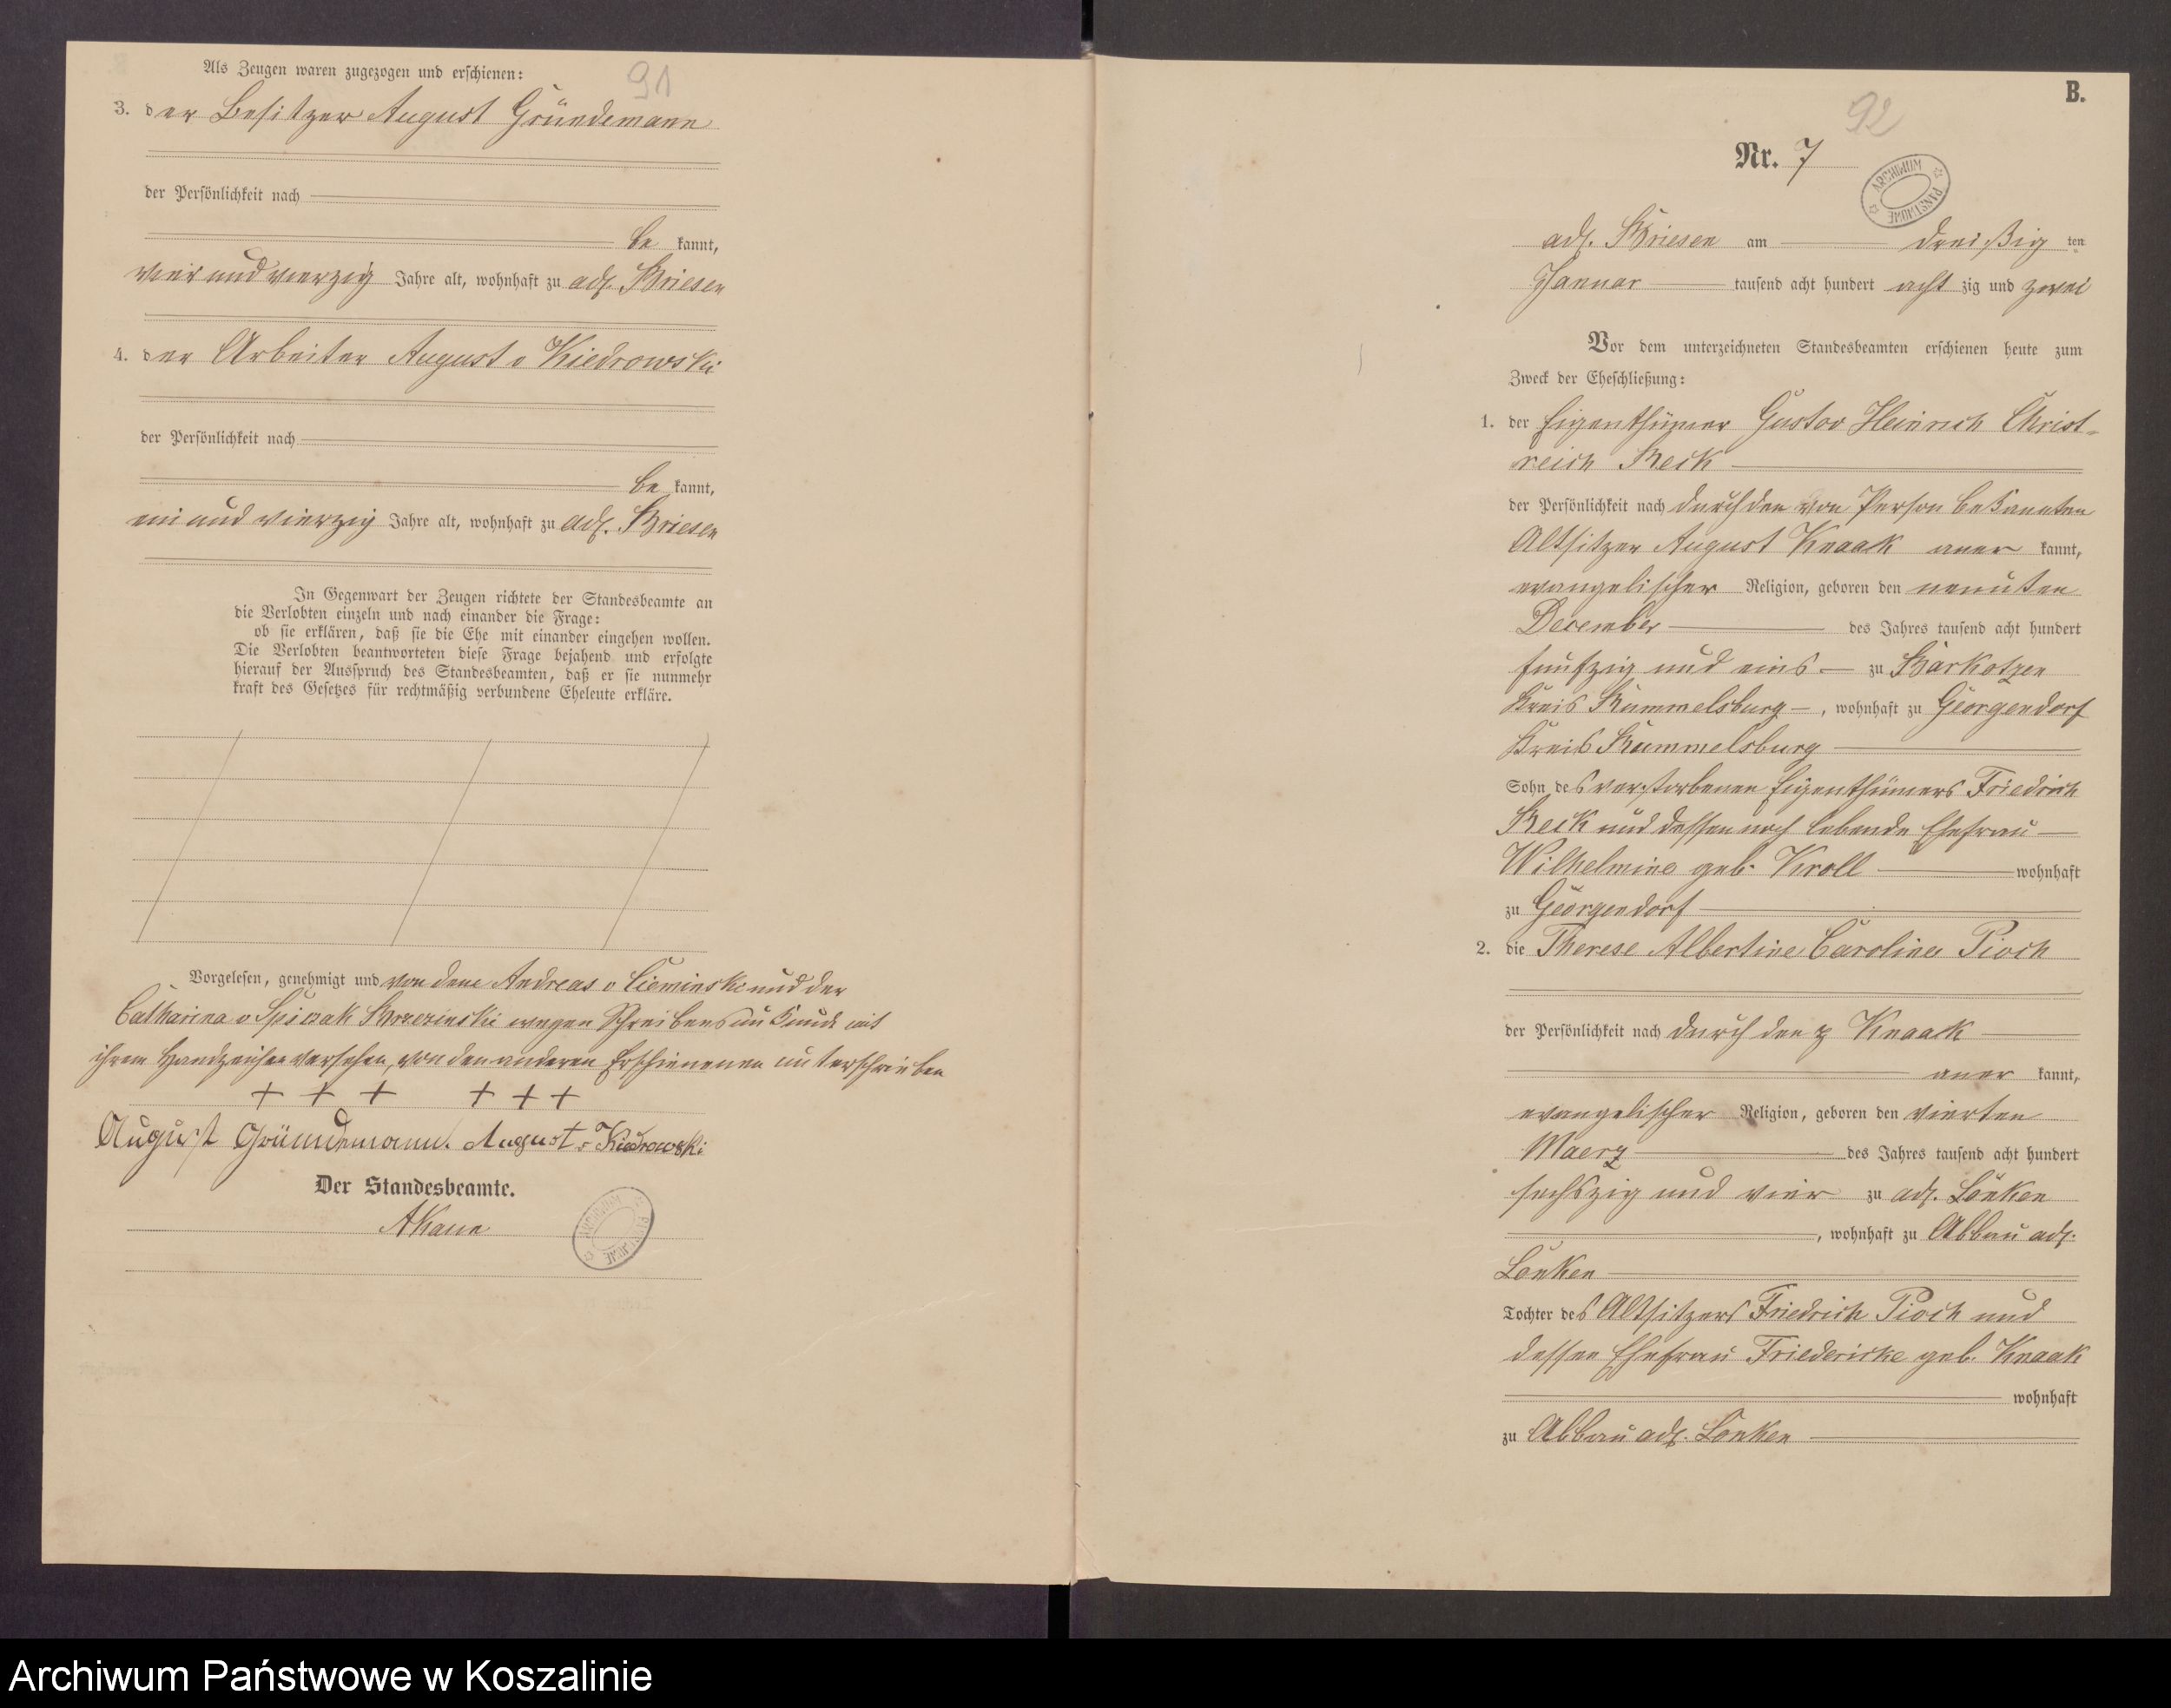 Als Zeugen waren zugezogen und erschienen:
91
3. der Besitzer August Gründemann
der Persönlichkeit nach
be kannt,
vier und vierzig Jahre alt, wohnhaft zu adl. Briesen
4. der Arbeiter August v Kiedrowski
der Persönlichkeit nach
be kannt,
ein und vierzig Jahre alt, wohnhaft zu adl. Briesen
In Gegenwart der Zeugen richtete der Standesbeamte an
die Verlobten einzeln und nach einander die Frage:
ob sie erklären, daß sie die Ehe mit einander eingehen wollen.
Die Verlobten beantworteten diese Frage bejahend und erfolgte
hierauf der Ausspruch des Standesbeamten, daß er sie nunmehr
kraft des Gesetzes für rechtmäßig verbundene Eheleute erkläre.
Vorgelesen, genehmigt und von dem Andreas v Cieminski und der
Catharina v wegen Schreibensunkunde mit
ihrem Handzeichen versehen, von den anderen Erschienenen unterschrieben
+ + + + + +
August Gründemann. August v Kiedrowski
Der Standesbeamte.
ARCHIWUM PAŃSTWOWE
B.
92
Nr. 7
ARCHIWUM PAŃSTWOWE
adl. Briesen am dreißig ten
Januar tausend acht hundert acht zig und zwei
Vor dem unterzeichneten Standesbeamten erschienen heute zum
Zweck der Eheschließung:
1. der Eigenthümer Gustav Heinrich Christ-
reich Beck
der Persönlichkeit nach durch den von Person bekannten
Altsitzer August Knaak aner kannt,
evangelischer Religion, geboren den neunten
December des Jahres tausend acht hundert
fünfzig und eins zu Barkotzen
Kreis Rummelsburg, wohnhaft zu Georgendorf
Kreis Rummelsburg
Sohn des verstorbenen Eigenthümers Friedrich
Beck und dessen noch lebende Ehefrau
Wilhelmine geb. Kroll wohnhaft
zu Georgendorf
2. die Therese Albertine Caroline Pioch
der Persönlichkeit nach durch den p Knaak
aner kannt,
evangelischer Religion, geboren den vierten
Maerz des Jahres tausend acht hundert
sechszig und vier zu adl. Lonken
, wohnhaft zu Abbau adl.
Lonken
Tochter des Altsitzers Friedrich Pioch und
dessen Ehefrau Friedericke geb. Knaak
wohnhaft
zu Abbau adl. Lonken
Archiwum Państwowe w Koszalinie